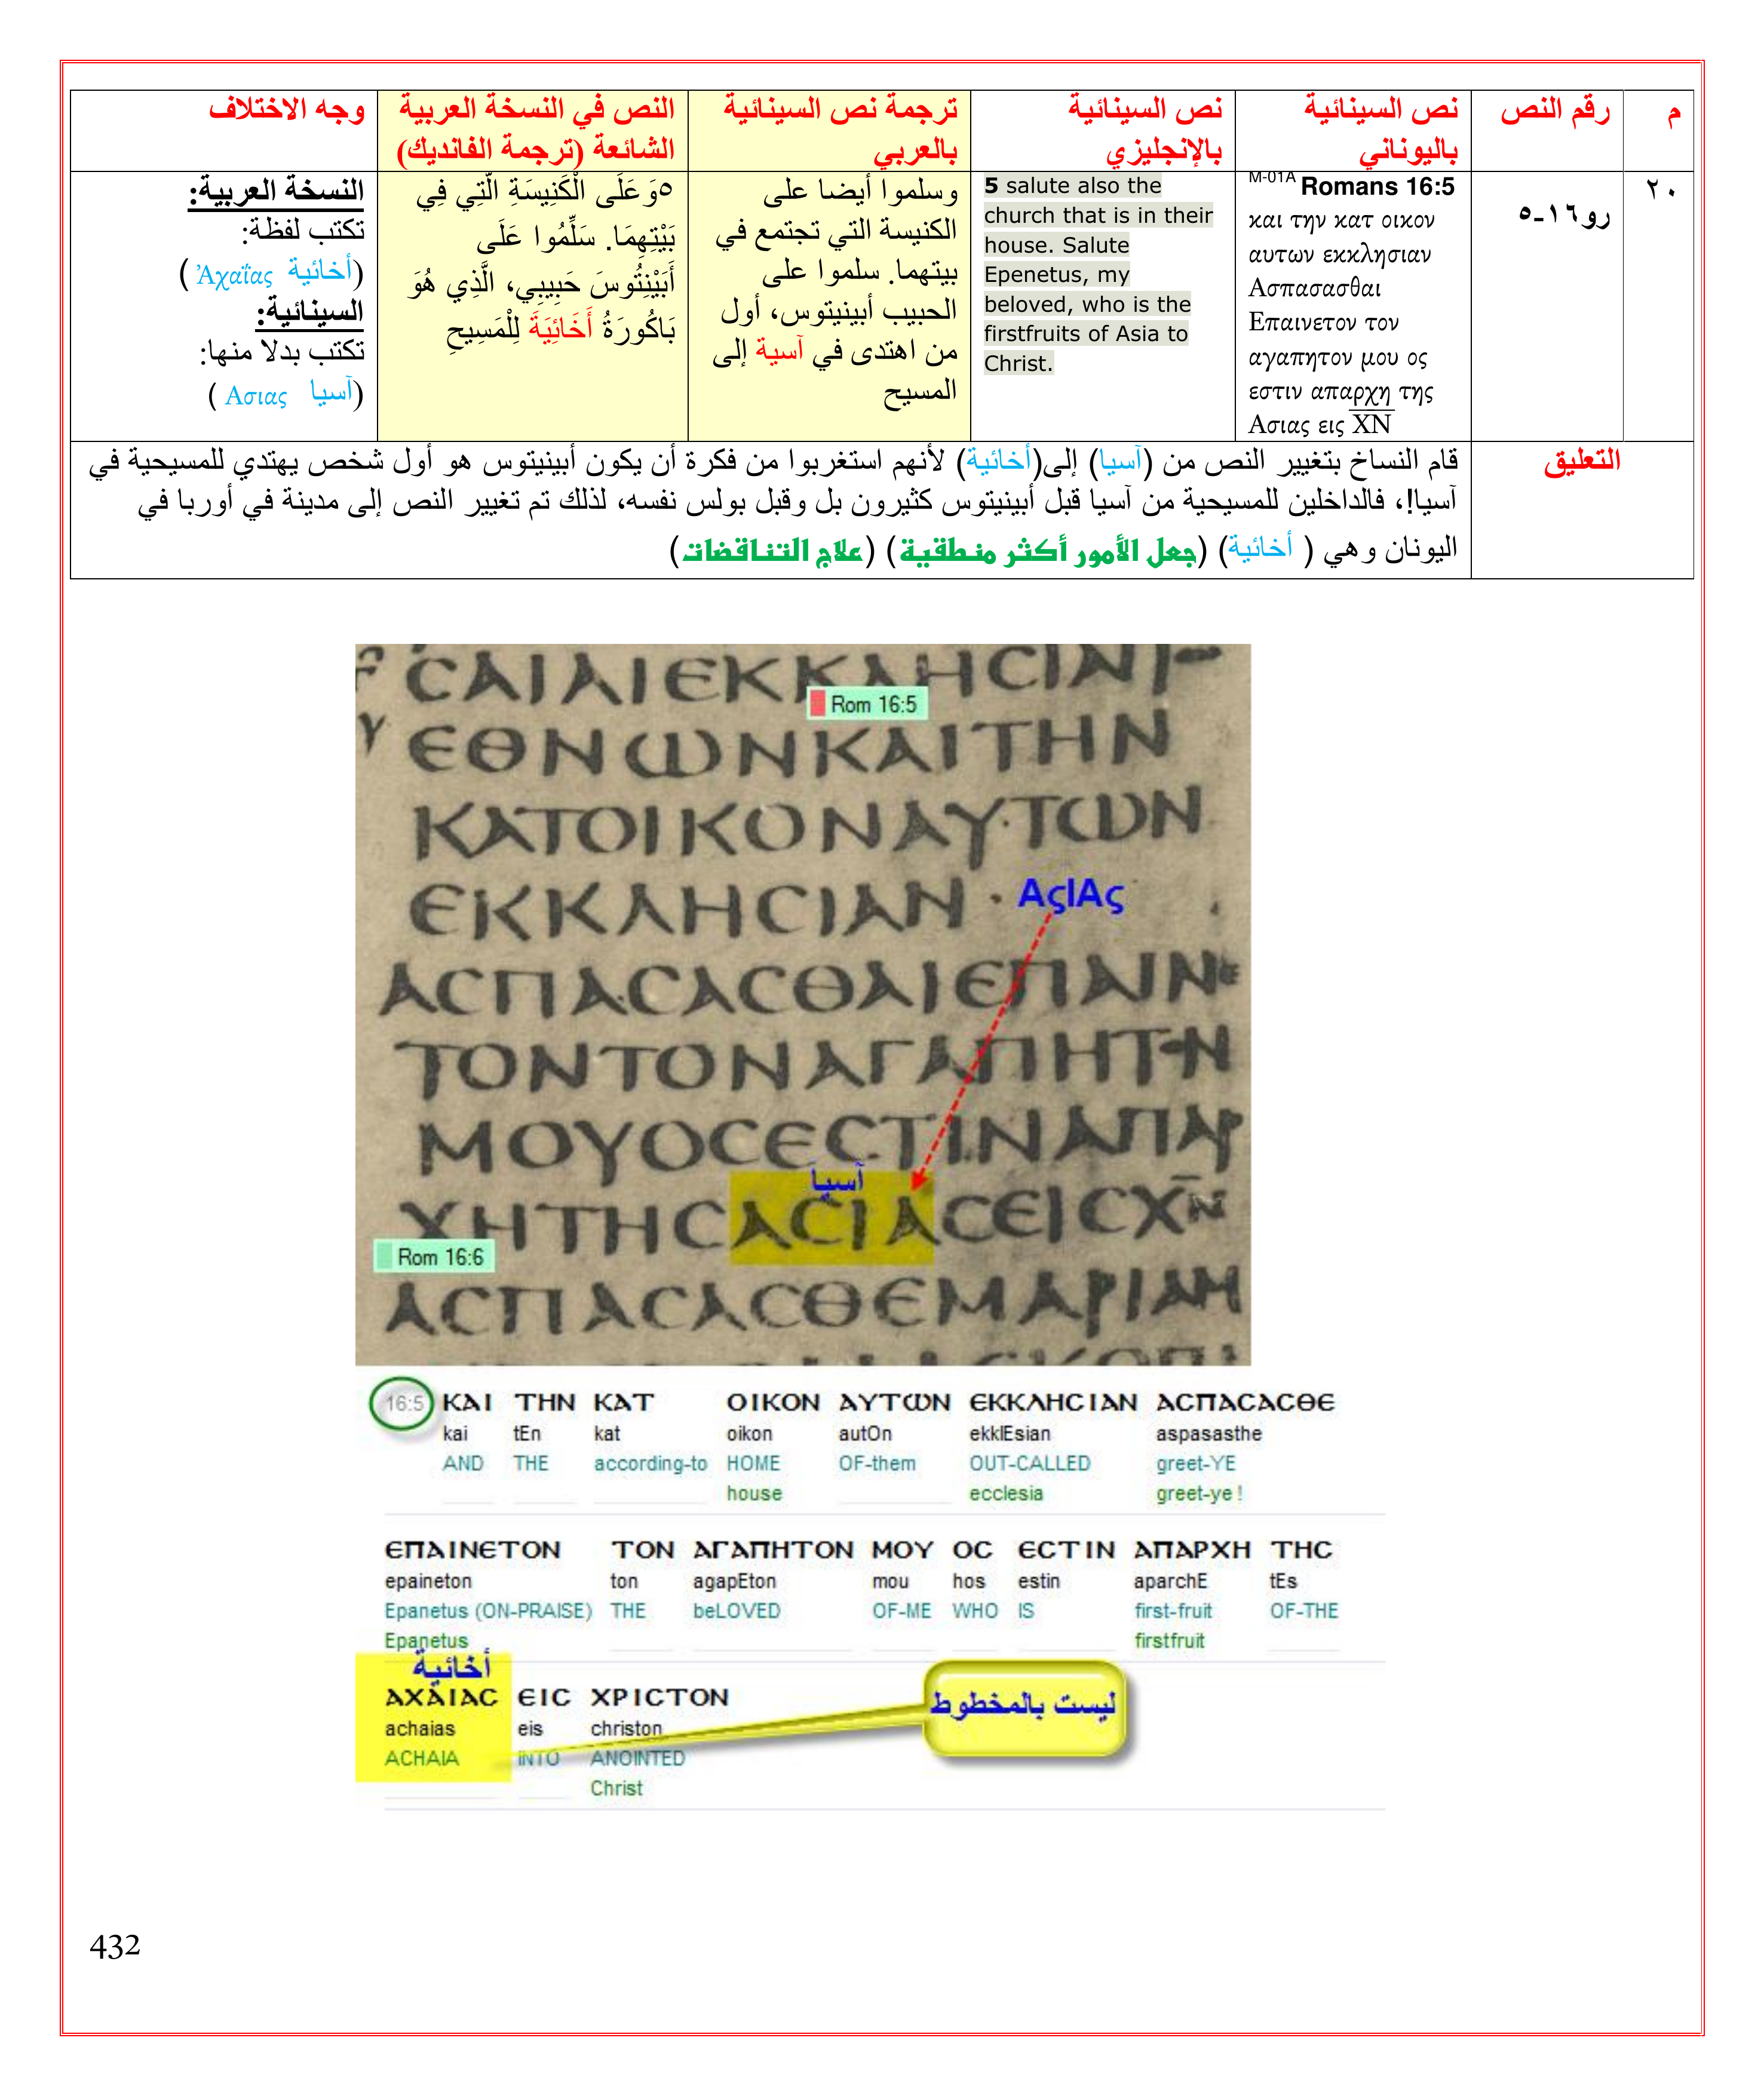 م
رقم النص
نص السينائية
باليوناني
نص السينائية
بالإنجليزي
ترجمة نص السينائية
بالعربي
النص في النسخة العربية
الشائعة (ترجمة الفانديك)
وجه الاختلاف
٢٠
رو١٦-٥
M-01A Romans 16:5
και την κατ οικον
αυτων εκκλησιαν
Ασπασασθαι
Επαινετον τον
αγαπητον μου ος
εστιν απαρχη της
Ασιας εις ΧΝ
5 salute also the
church that is in their
house. Salute
Epenetus, my
beloved, who is the
firstfruits of Asia to
Christ.
وسلموا أيضا على
الكنيسة التي تجتمع في
بيتهما. سلموا على
الحبيب أبينيتوس، أول
من اهتدى في آسية إلى
المسيح
٥وَعَلَى الْكَنِيسَةِ الَّتِي فِي
بَيْتِهِمَا. سَلِّمُوا عَلَى
أَبَيْنِتُوسَ حَبِيبِي، الَّذِي هُوَ
بَاكُورَةُ أَخَائِيَةَ لِلْمَسِيحِ
النسخة العربية:
تكتب لفظة:
(أخائية Ἀχαΐας )
السينائية:
تكتب بدلا منها:
(آسيا Ασιας )
التعليق
قام النساخ بتغيير النص من (آسيا) إلى(أخائية) لأنهم استغربوا من فكرة أن يكون أبينيتوس هو أول شخص يهتدي للمسيحية في
آسيا!، فالداخلين للمسيحية من آسيا قبل أبينيتوس كثيرون بل وقبل بولس نفسه، لذلك تم تغيير النص إلى مدينة في أوربا في
اليونان وهي ( أخائية) (جعل الأمور أكثر منطقية) (علاج التناقضات)
ϹΑΙΑΙΕΚΚΛΗϹΙΑΙ
Rom 16:5
ΕΘΝΩΝΚΑΙΤΗΝ
ΚΑΤΟΙΚΟΝΑΥΤΩΝ
ΕΚΚΛΗϹΙΑΝ
ΑςΙΑς
ΑϹΠΑϹΑϹΘΑΙΕΠΑΙΝΕ
ΤΟΝΤΟΝΑΓΑΠΗΤΟΝ
ΜΟΥΟϹΕϹΤΙΝΑΠΑΡ
آسيا
ΧΗΤΗϹΑϹΙΑϹΕΙϹΧΝ
Rom 16:6
ΑϹΠΑϹΑϹΘΕΜΑΡΙΑΝ
16:5 ΚΑΙ ΤΗΝ ΚΑΤ ΟΙΚΟΝ ΑΥΤΩΝ ΕΚΚΛΗϹΙΑΝ ΑϹΠΑϹΑϹΘΕ
kai tEn kat oikon autOn ekklEsian aspasasthe
AND THE according-to HOME OF-them OUT-CALLED greet-YE
house ecclesia greet-ye !
ΕΠΑΙΝΕΤΟΝ ΤΟΝ ΑΓΑΠΗΤΟΝ ΜΟΥ ΟϹ ΕϹΤΙΝ ΑΠΑΡΧΗ ΤΗϹ
epaineton ton agapEton mou hos estin aparchE tEs
Epanetus (ON-PRAISE) THE beLOVED OF-ME WHO IS first-fruit OF-THE
Epanetus firstfruit
أخائية
ΑΧΑΙΑϹ ΕΙϹ ΧΡΙϹΤΟΝ
achaias eis christon
ACHAIA INTO ANOINTED
Christ
ليست بالمخطوط
432